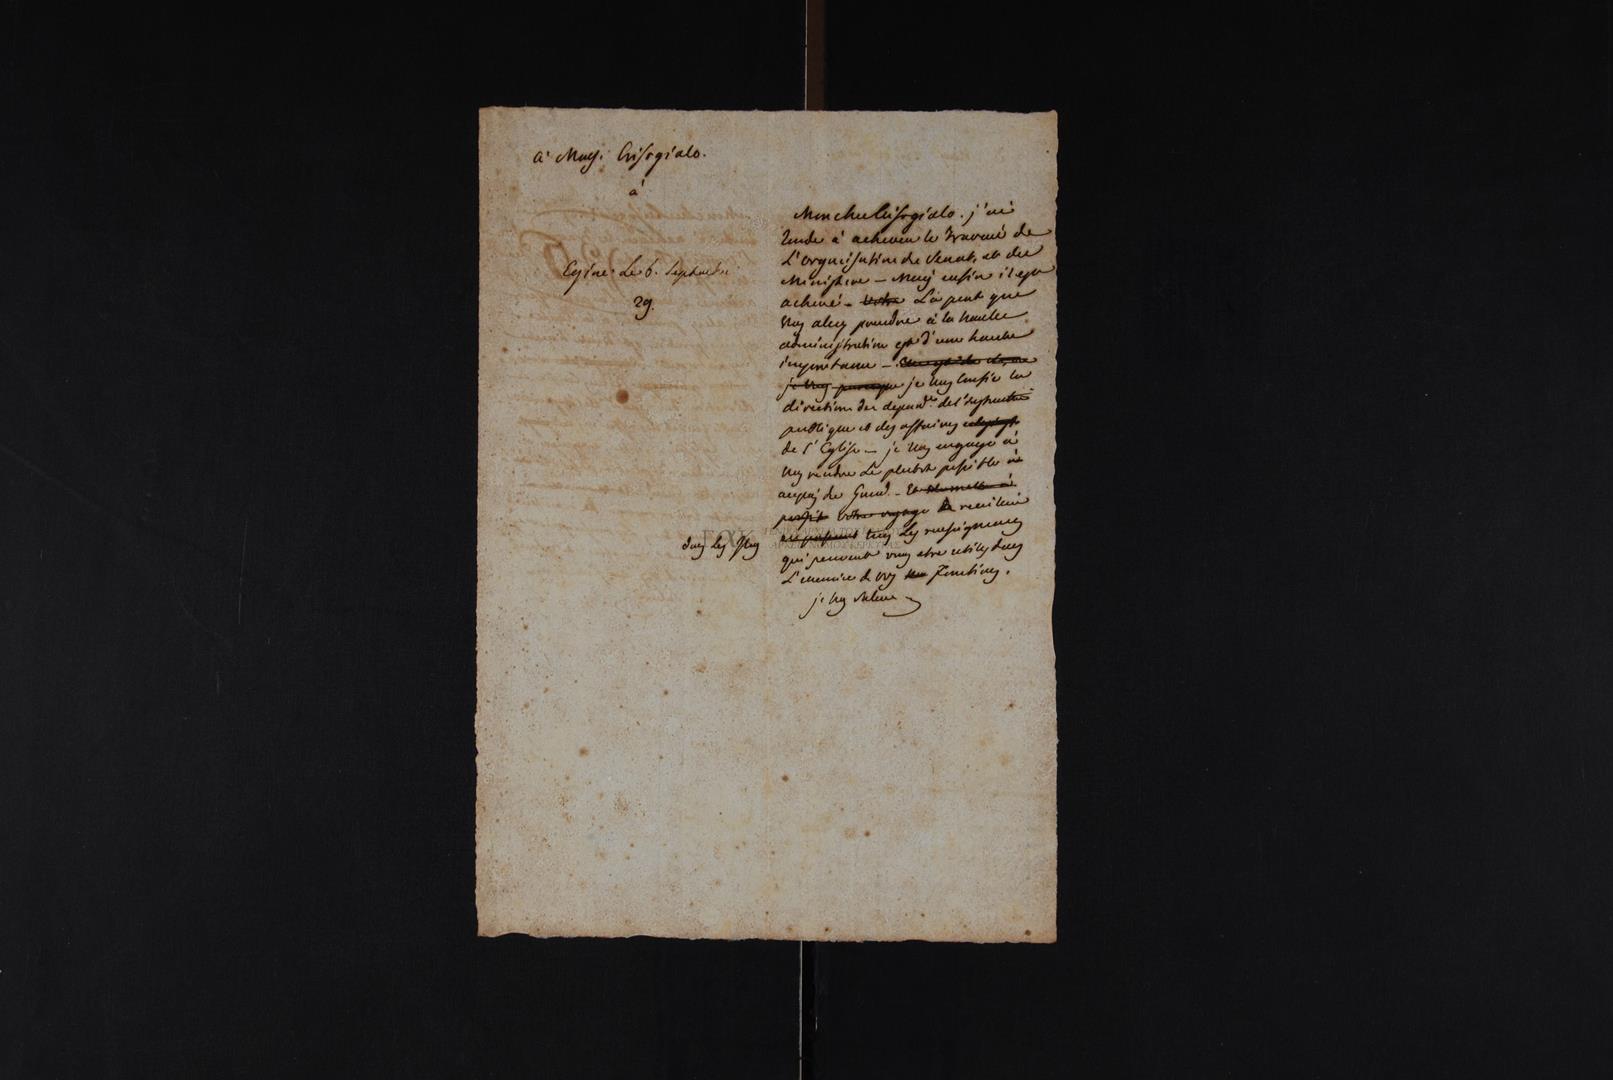 à Mons. Crisogialo.
à
Egine. Le 6. Septembre
29.
Mon cher Crisogialo. j'ai
tardé à achever le travail de
L'organisation du Senat, et du
Ministere – Mais enfin il est
achevé – votre La part que
vous allez prendre à la haute
administration est d'une haute
importance –
je vous je vous confie la
direction des depart. de l'instruction
publique et des affaires
de l'Eglise – je vous engage à
vous rendre le plutot possible
auprès du Gouv. –
votre voyage à recueillir
dans les Iles
tous les renseignemens
qui peuvent vous etre utiles dans
L'exercice de vos fonctions.
je vous salue